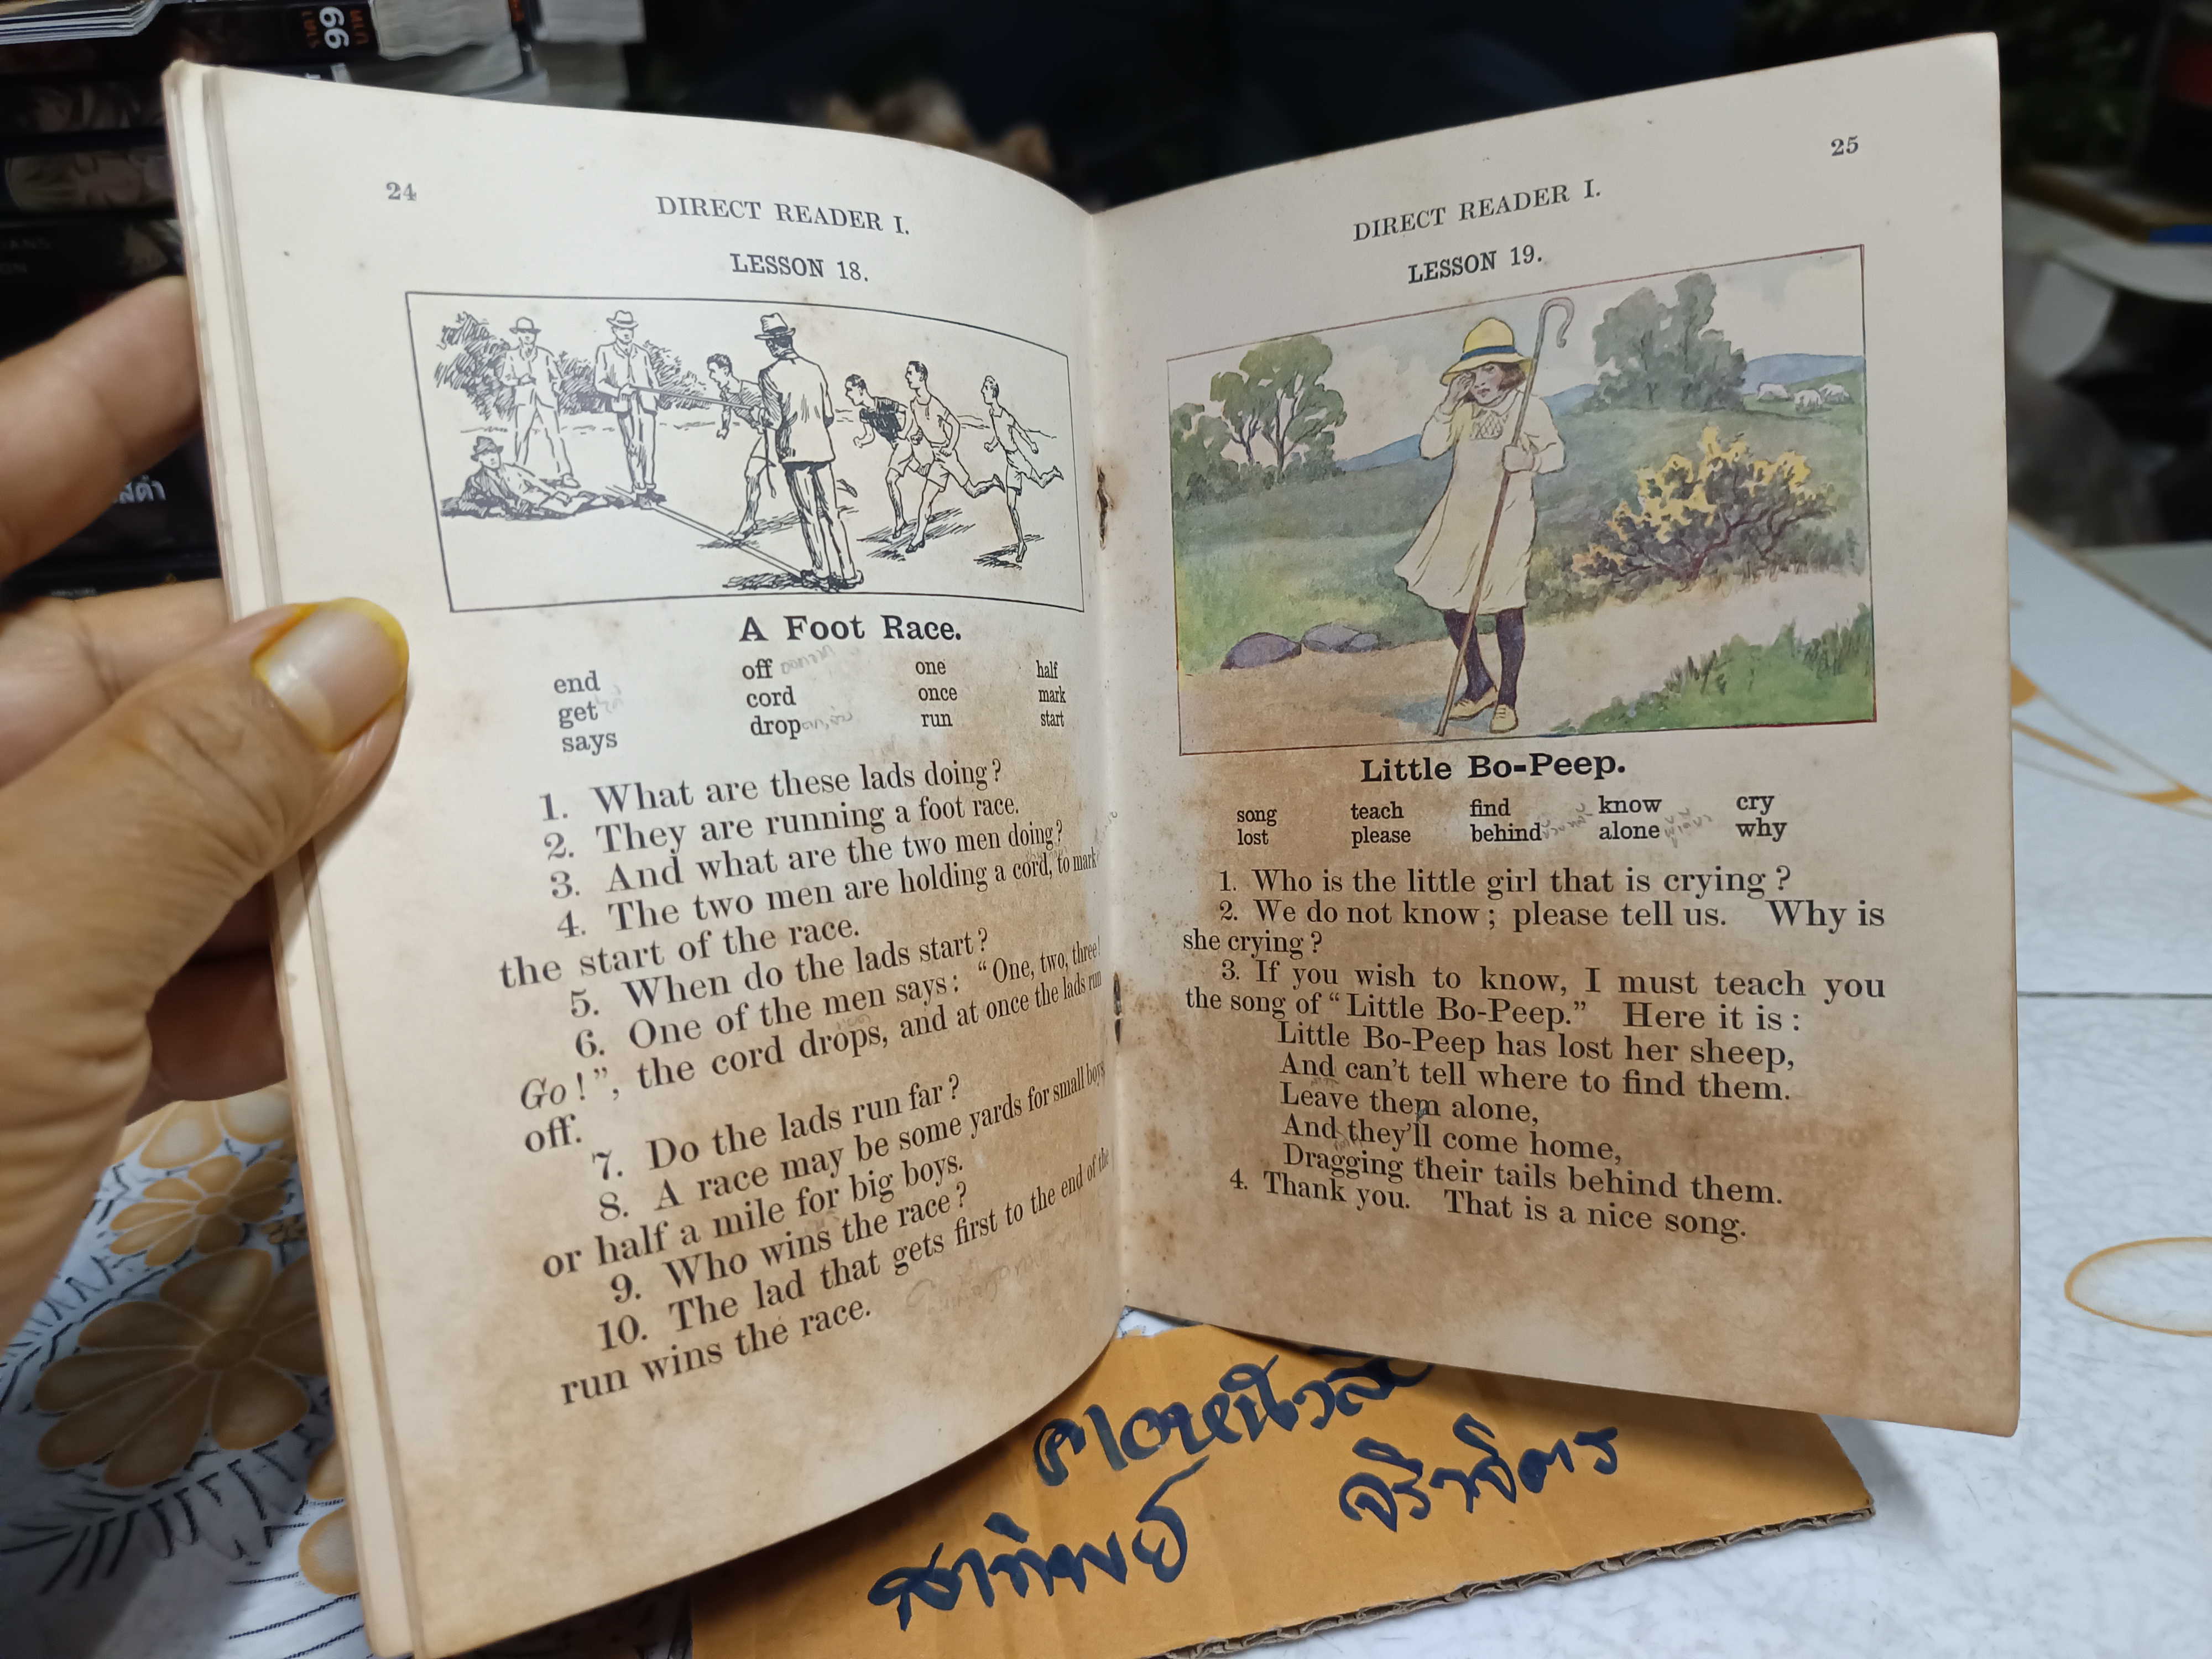 24
DIRECT READER I.
LESSON 18.
A Foot Race.
end off one half
get cord once mark
says drop run start
1. What are these lads doing?
2. They are running a foot race.
3. And what are the two men doing?
4. The two men are holding a cord, to mark
the start of the race.
5. When do the lads start?
6. One of the men says: “One, two, three!
Go!”, the cord drops, and at once the lads run
off.
7. Do the lads run far?
8. A race may be some yards for small boys
or half a mile for big boys.
9. Who wins the race?
10. The lad that gets first to the end of the
run wins the race.
25
DIRECT READER I.
LESSON 19.
Little Bo-Peep.
song teach find know cry
lost please behind alone why
1. Who is the little girl that is crying?
2. We do not know; please tell us. Why is
she crying?
3. If you wish to know, I must teach you
the song of “Little Bo-Peep.” Here it is:
Little Bo-Peep has lost her sheep,
And can't tell where to find them.
Leave them alone,
And they'll come home,
Dragging their tails behind them.
4. Thank you. That is a nice song.
66